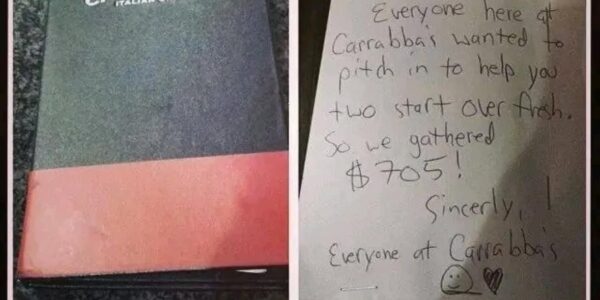 ITALIAN
Everyone here at
Carrabba's wanted to
pitch in to help you
two start over fresh.
So we gathered
$705!
Sincerly,
Everyone at Carrabba's